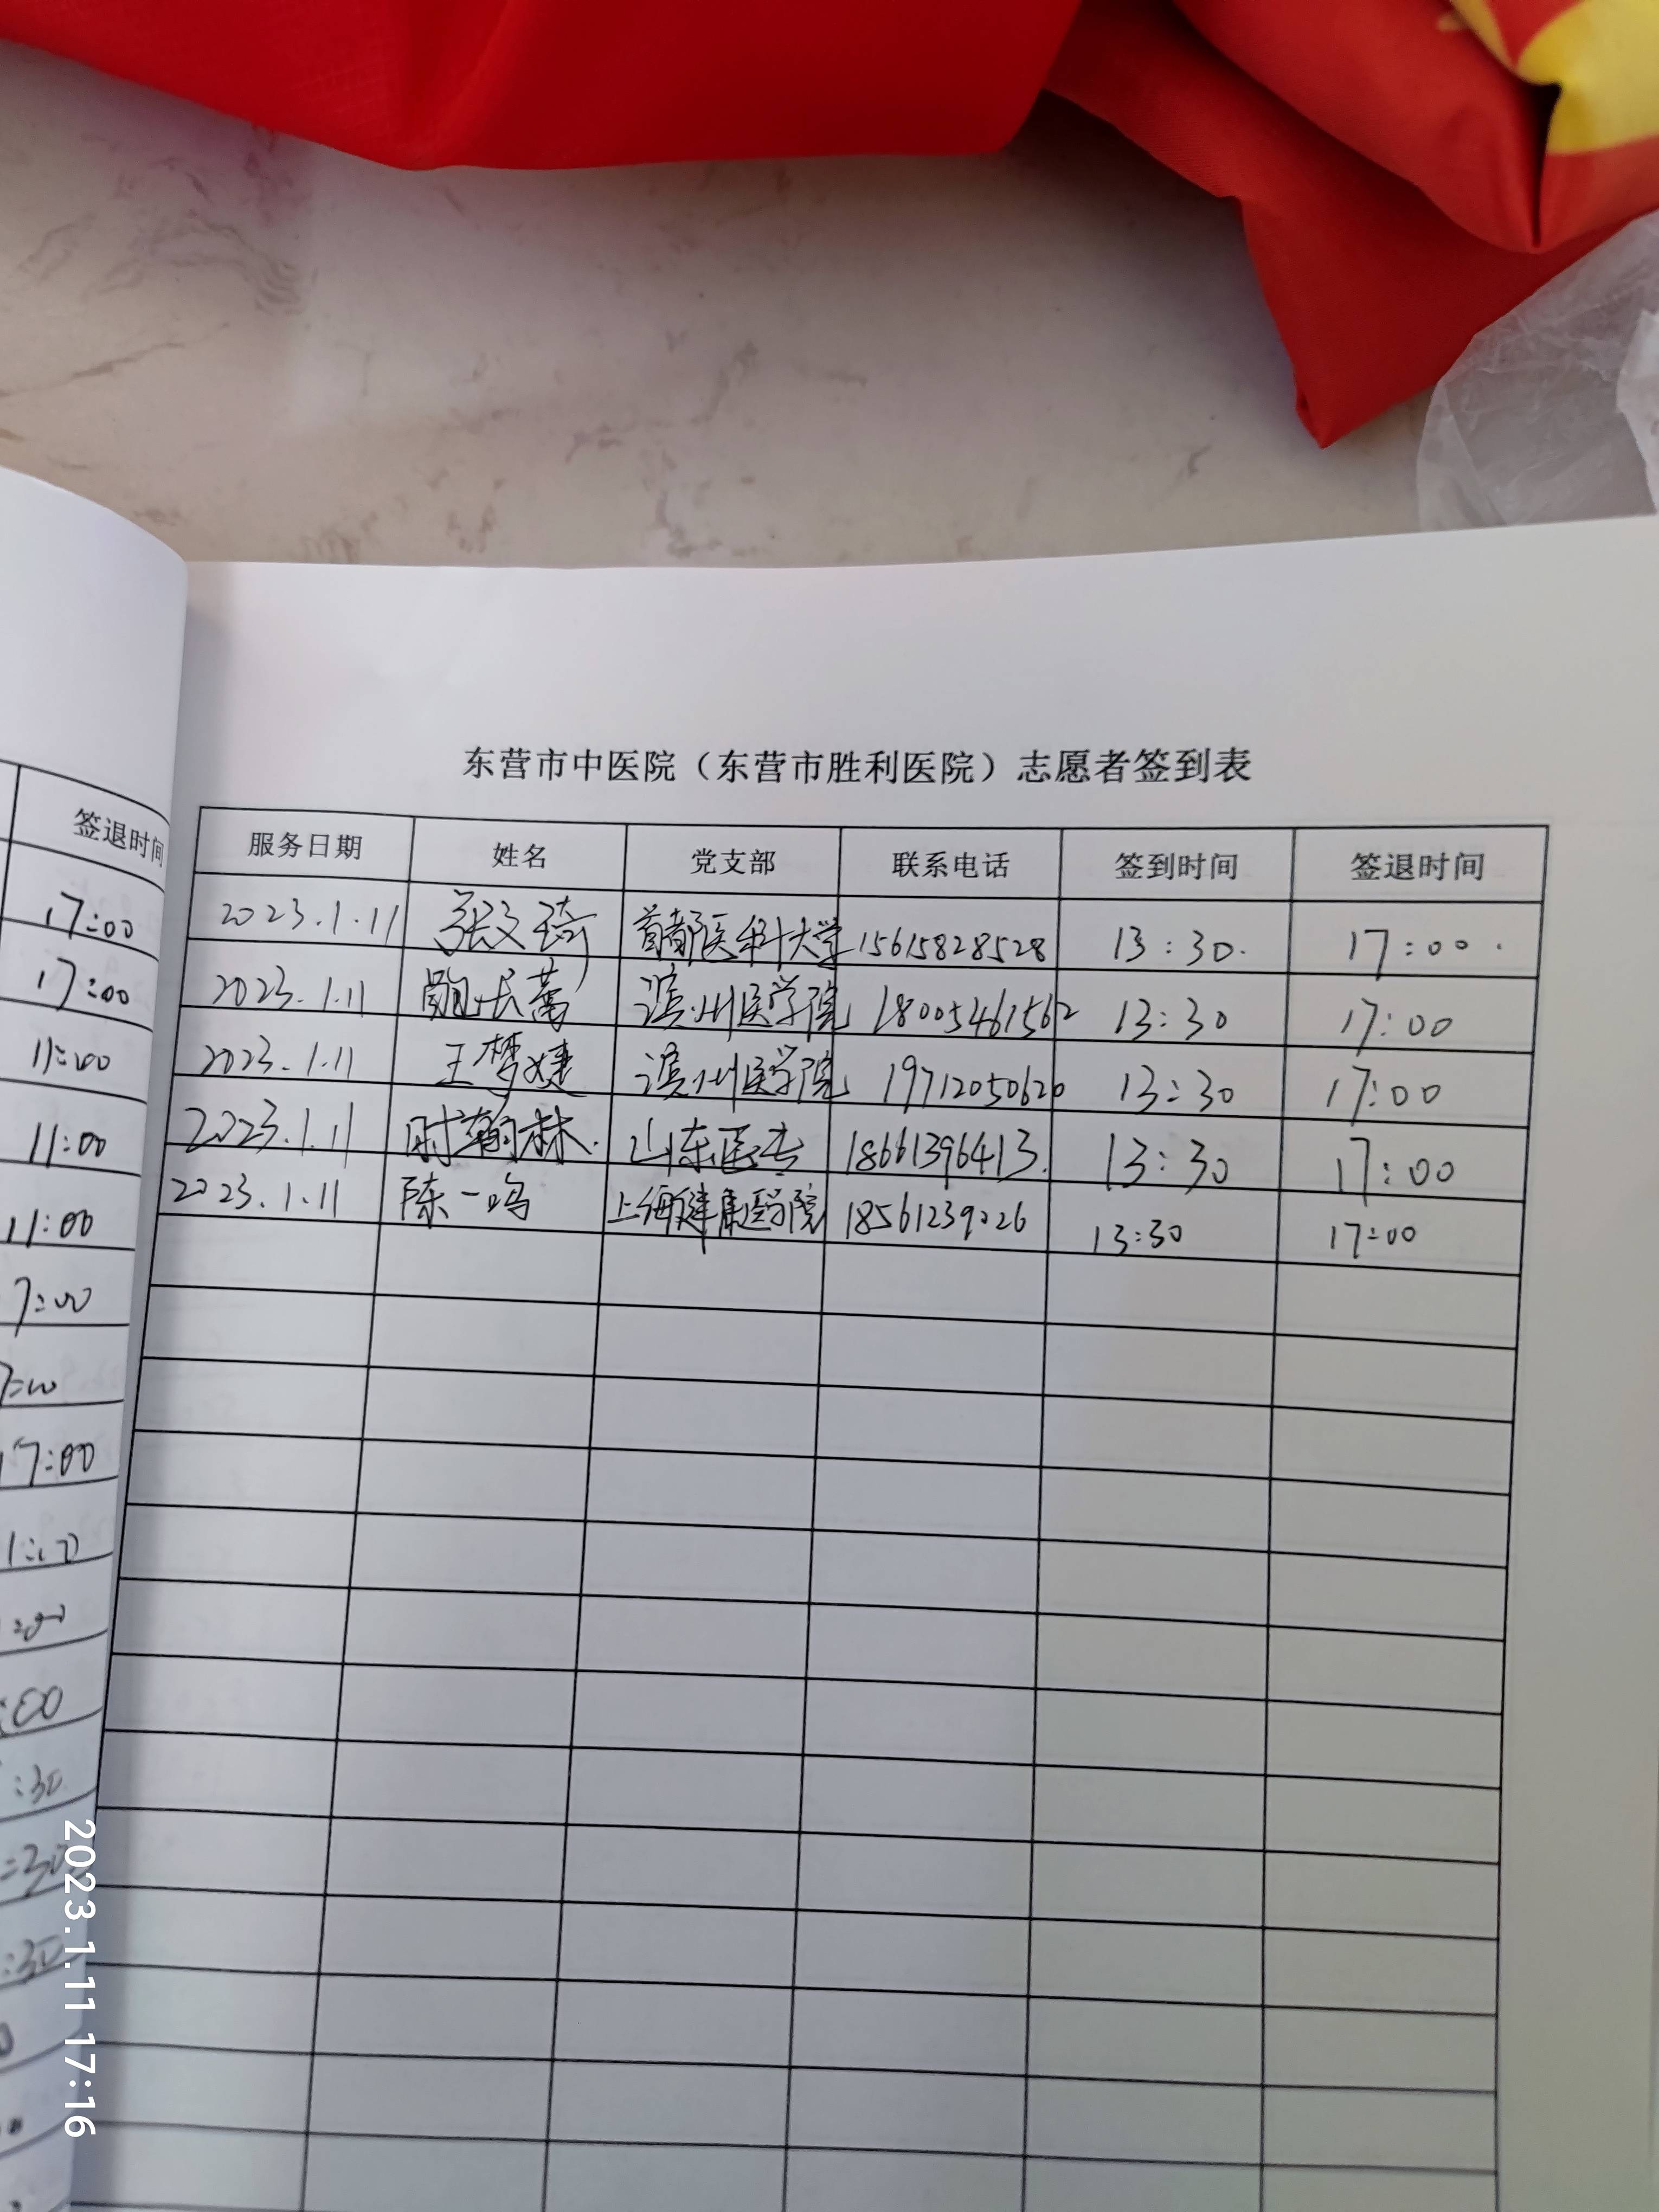 东营市中医院（东营市胜利医院）志愿者签到表
签退时间
服务日期 姓名 党支部 联系电话 签到时间 签退时间
17:00
2023.1.11 张文琦 首都医科大学 15615828528 13:30. 17:00.
17:00
2023.1.11 滨州医学院 18005461562 13:30 17:00
11:00
2023.1.11 王梦婕 滨州医学院 19712050620 13:30 17:00
11:00
2023.1.11 时翰林. 山东医专 18661396413. 13:30 17:00
11:00
2023.1.11 陈一鸣 上海健康医学院 18561239226 13:30 17:00
7:00
17:00
:00
:30
:30
:30
2023.1.11 17:16